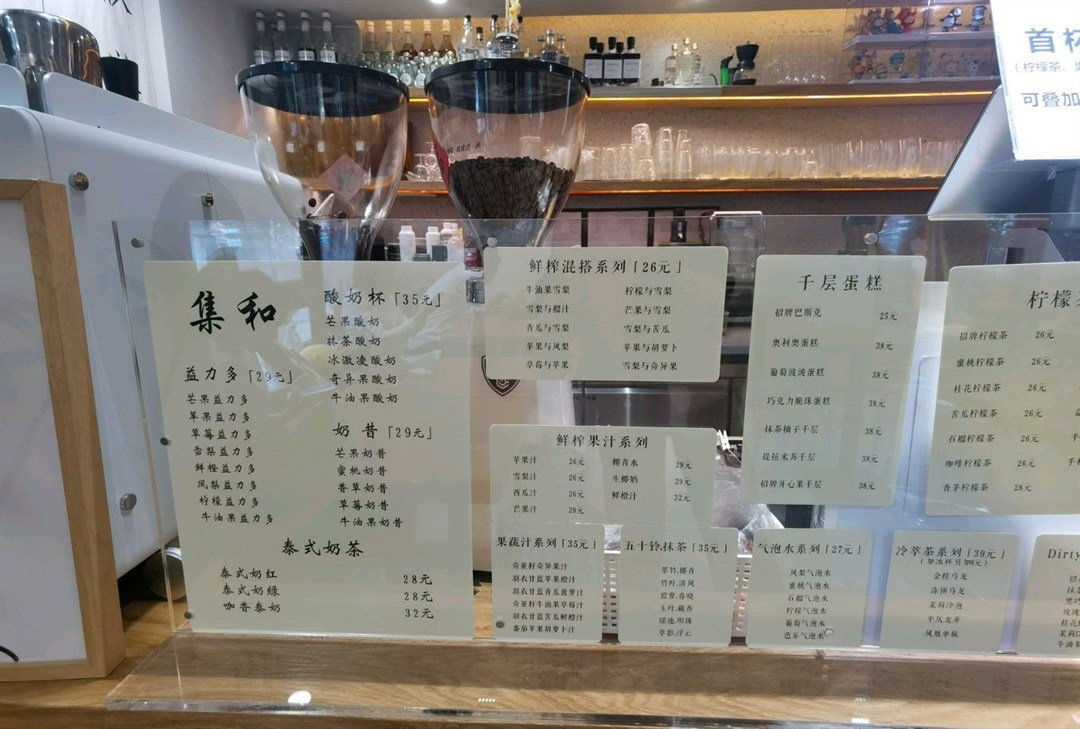 首杯
（柠檬茶、
可叠加
集和
益力多「29元」
芒果益力多
苹果益力多
草莓益力多
雪梨益力多
鲜橙益力多
凤梨益力多
柠檬益力多
牛油果益力多
酸奶杯「35元」
芒果酸奶
抹茶酸奶
冰激凌酸奶
奇异果酸奶
牛油果酸奶
奶昔「29元」
芒果奶昔
蜜桃奶昔
香草奶昔
草莓奶昔
牛油果奶昔
泰式奶茶
泰式奶红 28元
泰式奶绿 28元
咖香泰奶 32元
鲜榨混搭系列「26元」
牛油果雪梨 柠檬与雪梨
雪梨与橙汁 芒果与雪梨
青瓜与雪梨 雪梨与苦瓜
苹果与凤梨 苹果与胡萝卜
草莓与苹果 雪梨与奇异果
鲜榨果汁系列
苹果汁 26元 椰青水 29元
雪梨汁 26元 生椰奶 29元
西瓜汁 26元 鲜橙汁 32元
芒果汁 29元
果蔬汁系列「35元」
奇亚籽奇异果汁
羽衣甘蓝苹果橙汁
羽衣甘蓝青瓜菠萝汁
奇亚籽牛油果草莓汁
羽衣甘蓝苦瓜鲜橙汁
番茄苹果胡萝卜汁
五十铃.抹茶「35元」
翠竹.椰青
竹叶.清风
碧萝.春晓
玉叶.藏香
瑶池.明珠
萃影.浮云
气泡水系列「27元」
凤梨气泡水
蜜桃气泡水
石榴气泡水
柠檬气泡水
葡萄气泡水
芭乐气泡水
千层蛋糕
招牌巴斯克 25元
奥利奥蛋糕 38元
葡萄波波蛋糕 38元
巧克力脆珠蛋糕 38元
抹茶柚子千层 38元
提拉米苏千层 38元
招牌开心果千层 38元
冷萃茶系列「39元」
（加冰杯另加8元）
金桂乌龙
冻顶乌龙
茉莉冷泡
半瓜龙井
凤凰单枞
柠檬
招牌柠檬茶 26元
蜜桃柠檬茶 26元
桂花柠檬茶 26元
苦瓜柠檬茶 26元
石榴柠檬茶 26元
咖啡柠檬茶 26元
香茅柠檬茶 28元
Dirty
招
抹茶
黑巧
玫瑰
桂花
茉莉
牛油果